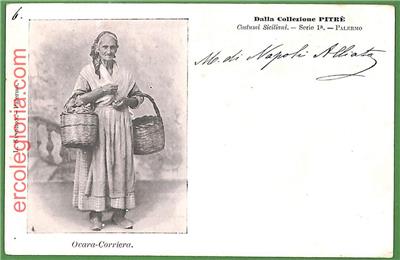 6.
Dalla Collezione PITRÈ
Costumi Siciliani. — Serie 1ª. — PALERMO
M. di Napoli Alliata
ercolegloria.com
Ovara-Corriera.